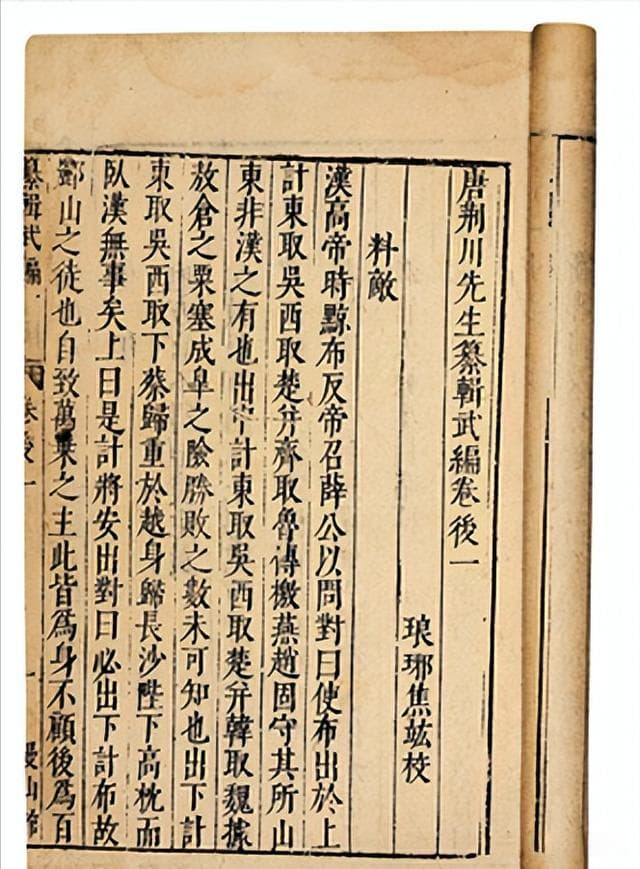 唐荊川先生纂輯武編卷後一
琅琊焦竑校
料敵
漢高帝時黥布反帝召薛公以問對曰使布出於上
計東取吳西取楚并齊取魯傳檄燕趙固守其所山
東非漢之有也出中計東取吳西取楚并韓取魏據
敖倉之粟塞成皐之險勝敗之數未可知也出下計
東取吳西取下蔡歸重於越身歸長沙陛下高枕而
臥漢無事矣上曰是計將安出對曰必出下計布故
酈山之徒也自致萬乘之主此皆爲身不顧後爲百
纂輯武編 卷後一 一 曼山館